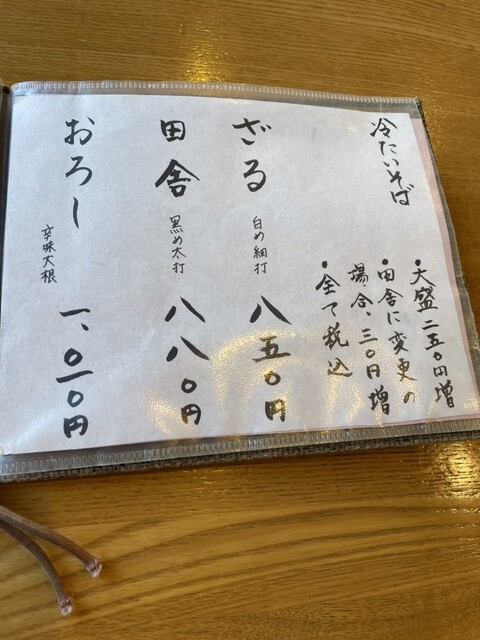 冷たいそば
・大盛二五〇円増
・田舎に変更の
場合、三〇円増
・全て税込
ざる 白め細打 八五〇円
田舎 黒め太打 八八〇円
おろし 辛味大根 一、〇一〇円